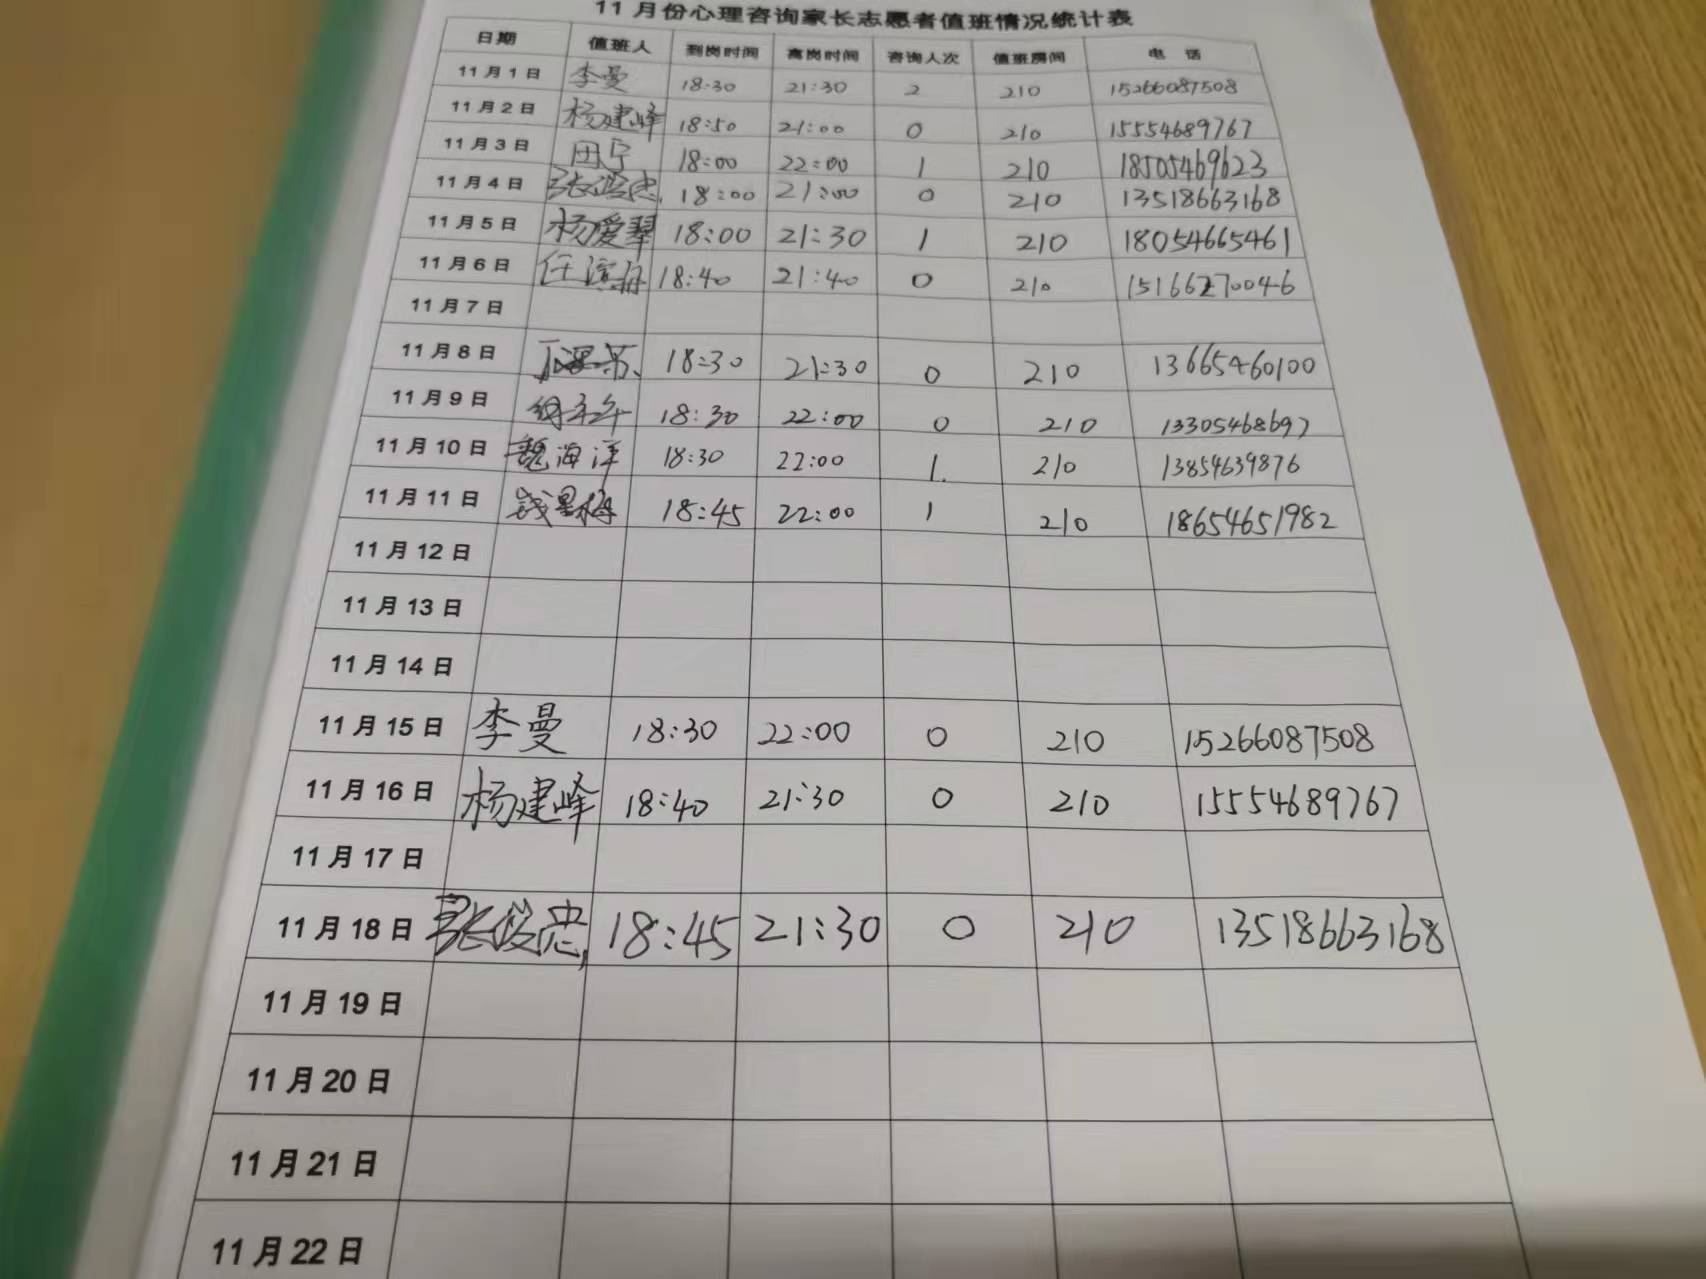 11月份心理咨询家长志愿者值班情况统计表
日期 值班人 到岗时间 离岗时间 咨询人次 值班房间 电 话
11月1日 李曼 18:30 21:30 2 210 15266087508
11月2日 杨建峰 18:50 21:00 0 210 15554689767
11月3日 田宁 18:00 22:00 1 210 18505469623
11月4日 张俊忠 18:00 21:00 0 210 13518663168
11月5日 杨爱翠 18:00 21:30 1 210 18054665461
11月6日 18:40 21:40 0 210 15166270046
11月7日
11月8日 18:30 21:30 0 210 13665460100
11月9日 18:30 22:00 0 210 13305468697
11月10日 魏海洋 18:30 22:00 1. 210 13854639876
11月11日 18:45 22:00 1 210 18654651982
11月12日
11月13日
11月14日
11月15日 李曼 18:30 22:00 0 210 15266087508
11月16日 杨建峰 18:40 21:30 0 210 15554689767
11月17日
11月18日 张俊忠 18:45 21:30 0 210 13518663168
11月19日
11月20日
11月21日
11月22日